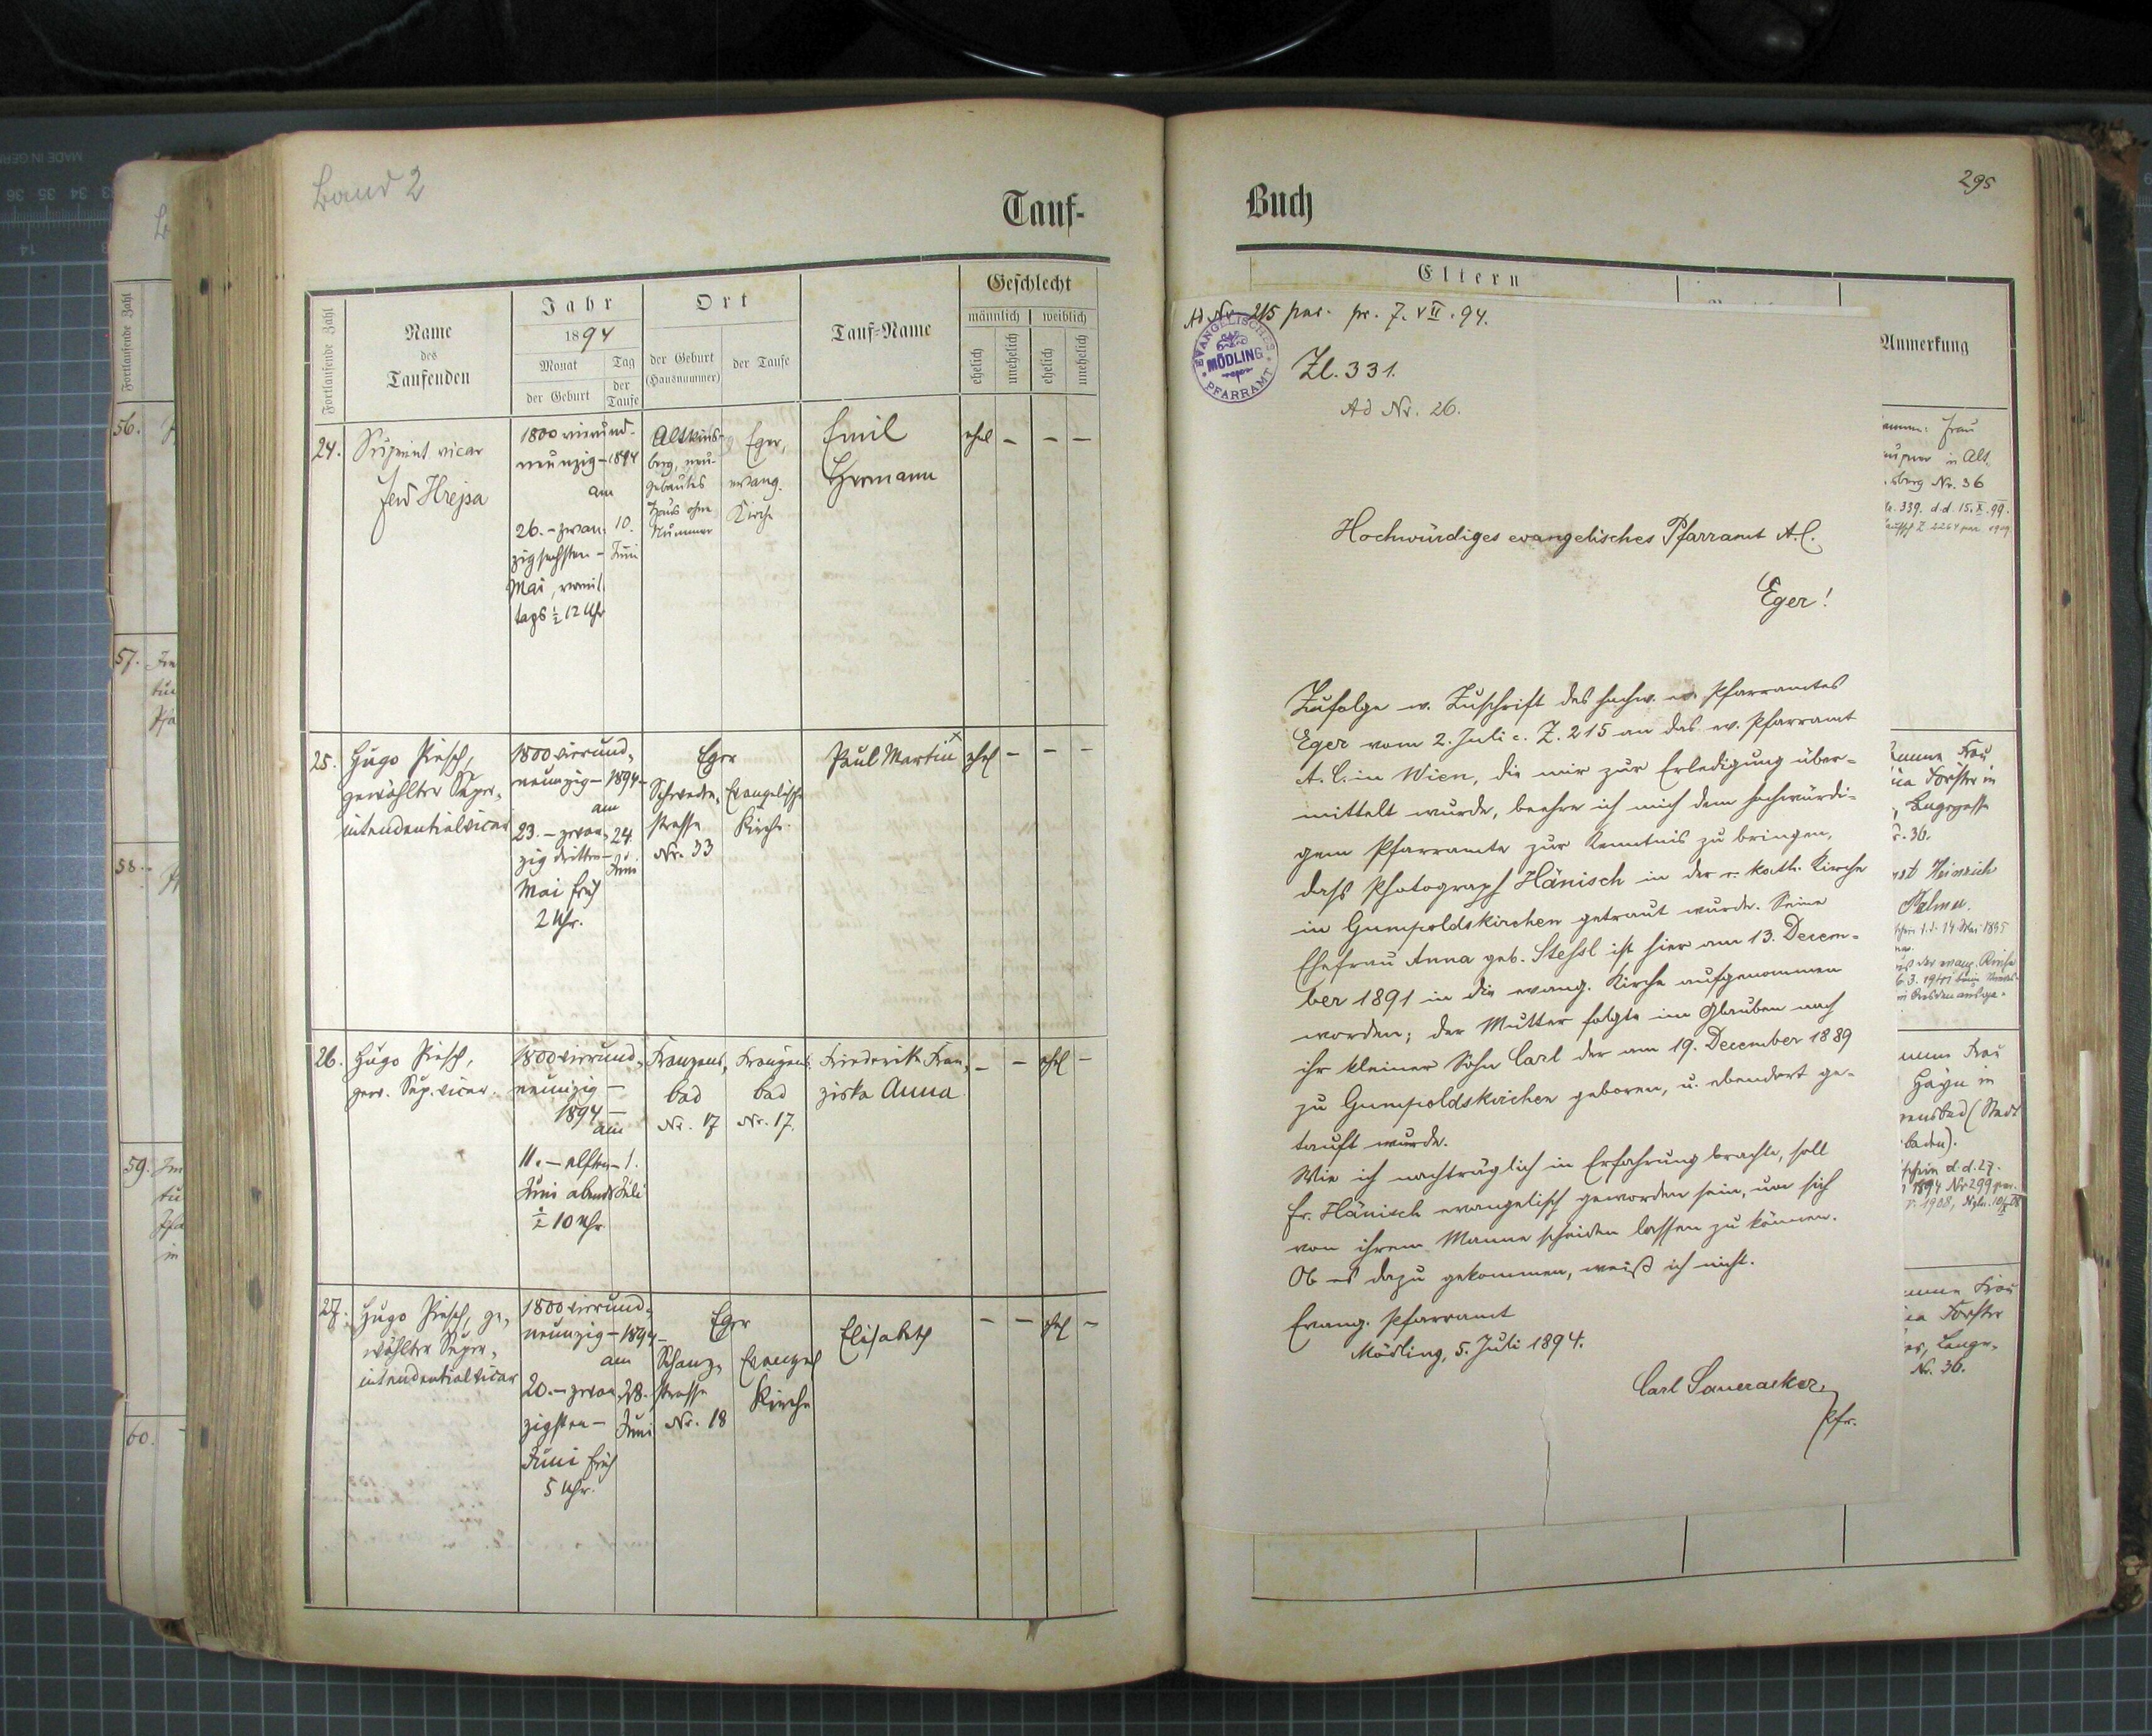 Band 2
Tauf-
Fortlaufende Zahl
Name
des
Taufenden
Jahr
1894
Monat
Tag
der Geburt
der
Taufe
Ort
der Geburt
(Hausnummer)
der Taufe
Tauf-Name
Geschlecht
männlich
weiblich
ehelich
unehelich
ehelich
unehelich
24.
Suprint. vicar
Ferd Hrejsa
1800 vierund-
neunzig - 1894
am
26. - zwan-
zigsechsten -
Mai, vormit-
tags ½ 12 Uhr
10.
Juni
Altkins-
berg, neu-
gebautes
Haus ohne
Nummer
Eger,
evang.
Kirche
Emil
Hermann
ehel
- - -
25.
Hugo Piesch,
gewählter Super-
intendentialvicar
1800 vierund-
neunzig - 1894 -
am
23. - zwan-
zig dritten -
Mai früh
2 Uhr.
24.
Juni
Eger
Schweden-
strasse
Nr. 33
Evangelische
Kirche.
Paul Martin x
ehel
- - -
26.
Hugo Piesch,
gew. Sup. vicar.
1800 vierund-
neunzig -
1894 -
am
11. - elften -
Juni abends
½ 10 Uhr
1.
Juli
Franzens-
bad
Nr. 17
Franzens-
bad
Nr. 17.
Friederike Fran-
ziska Anna
- -
ehel
-
27.
Hugo Piesch, ge-
wählter Super-
intendentialvicar
1800 vierund-
neunzig - 1894 -
am
20. - zwan-
zigsten -
Juni früh
5 Uhr.
28.
Juni
Eger
Schanz-
strasse
Nr. 18
Evangel
Kirche
Elisabeth
- -
ehel
-
56.
57.
58.
59.
60.
Buch
295
Eltern
Anmerkung
Ad Nr. 215 par. pr. 7. VII. 94.
EVANGELISCHES
MÖDLING
PFARRAMT
Zl. 331.
Ad Nr. 26.
Hochwürdiges evangelisches Pfarramt A.C.
Eger!
Zufolge w. Zuschrift des hochw. ev. Pfarramtes
Eger vom 2. Juli c. Z. 215 an das ev. Pfarramt
A. C. in Wien, die mir zur Erledigung über-
mittelt wurde, beehre ich mich dem hochwürdi-
gem Pfarramte zur Kenntnis zu bringen,
dass Photograph Hänisch in der r. kath. Kirche
in Gumpoldskirchen getraut wurde. Seine
Ehefrau Anna geb. Stessl ist hier am 13. Decem-
ber 1891 in die evang. Kirche aufgenommen
worden; der Mutter folgte im Glauben nach
ihr kleiner Sohn Carl der am 19. December 1889
zu Gumpoldskirchen geboren, u. ebendort ge-
tauft wurde.
Wie ich nachträglich in Erfahrung brachte, soll
Fr. Hänisch evangelisch geworden sein, um sich
von ihrem Manne scheiden lassen zu können.
Ob es dazu gekommen, weiß ich nicht.
Evang. Pfarramt
Mödling, 5. Juli 1894.
Carl Saueracker
Pfr.
Frau
in Alt-
sberg Nr. 36
339. d.d. 15. X. 99.
Frau
Forster in
Nr. 36.
Heinrich
14 Mai 1895
der evang. Kirche
Frau
Hayn in
(Stadt
baden).
d.d. 27.
1894 Nr 299 par.
1908,
Frau
Forster
Lange-
Nr. 36.